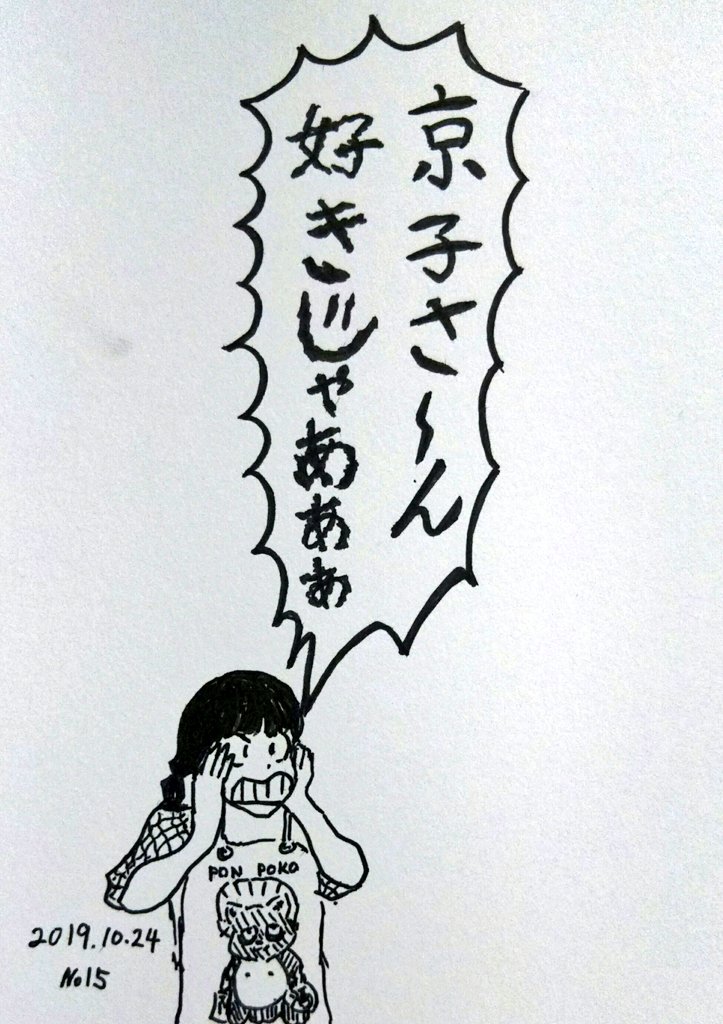 京子さ〜ん
好きじゃあぁぁ
PON POKO
2019.10.24
No15